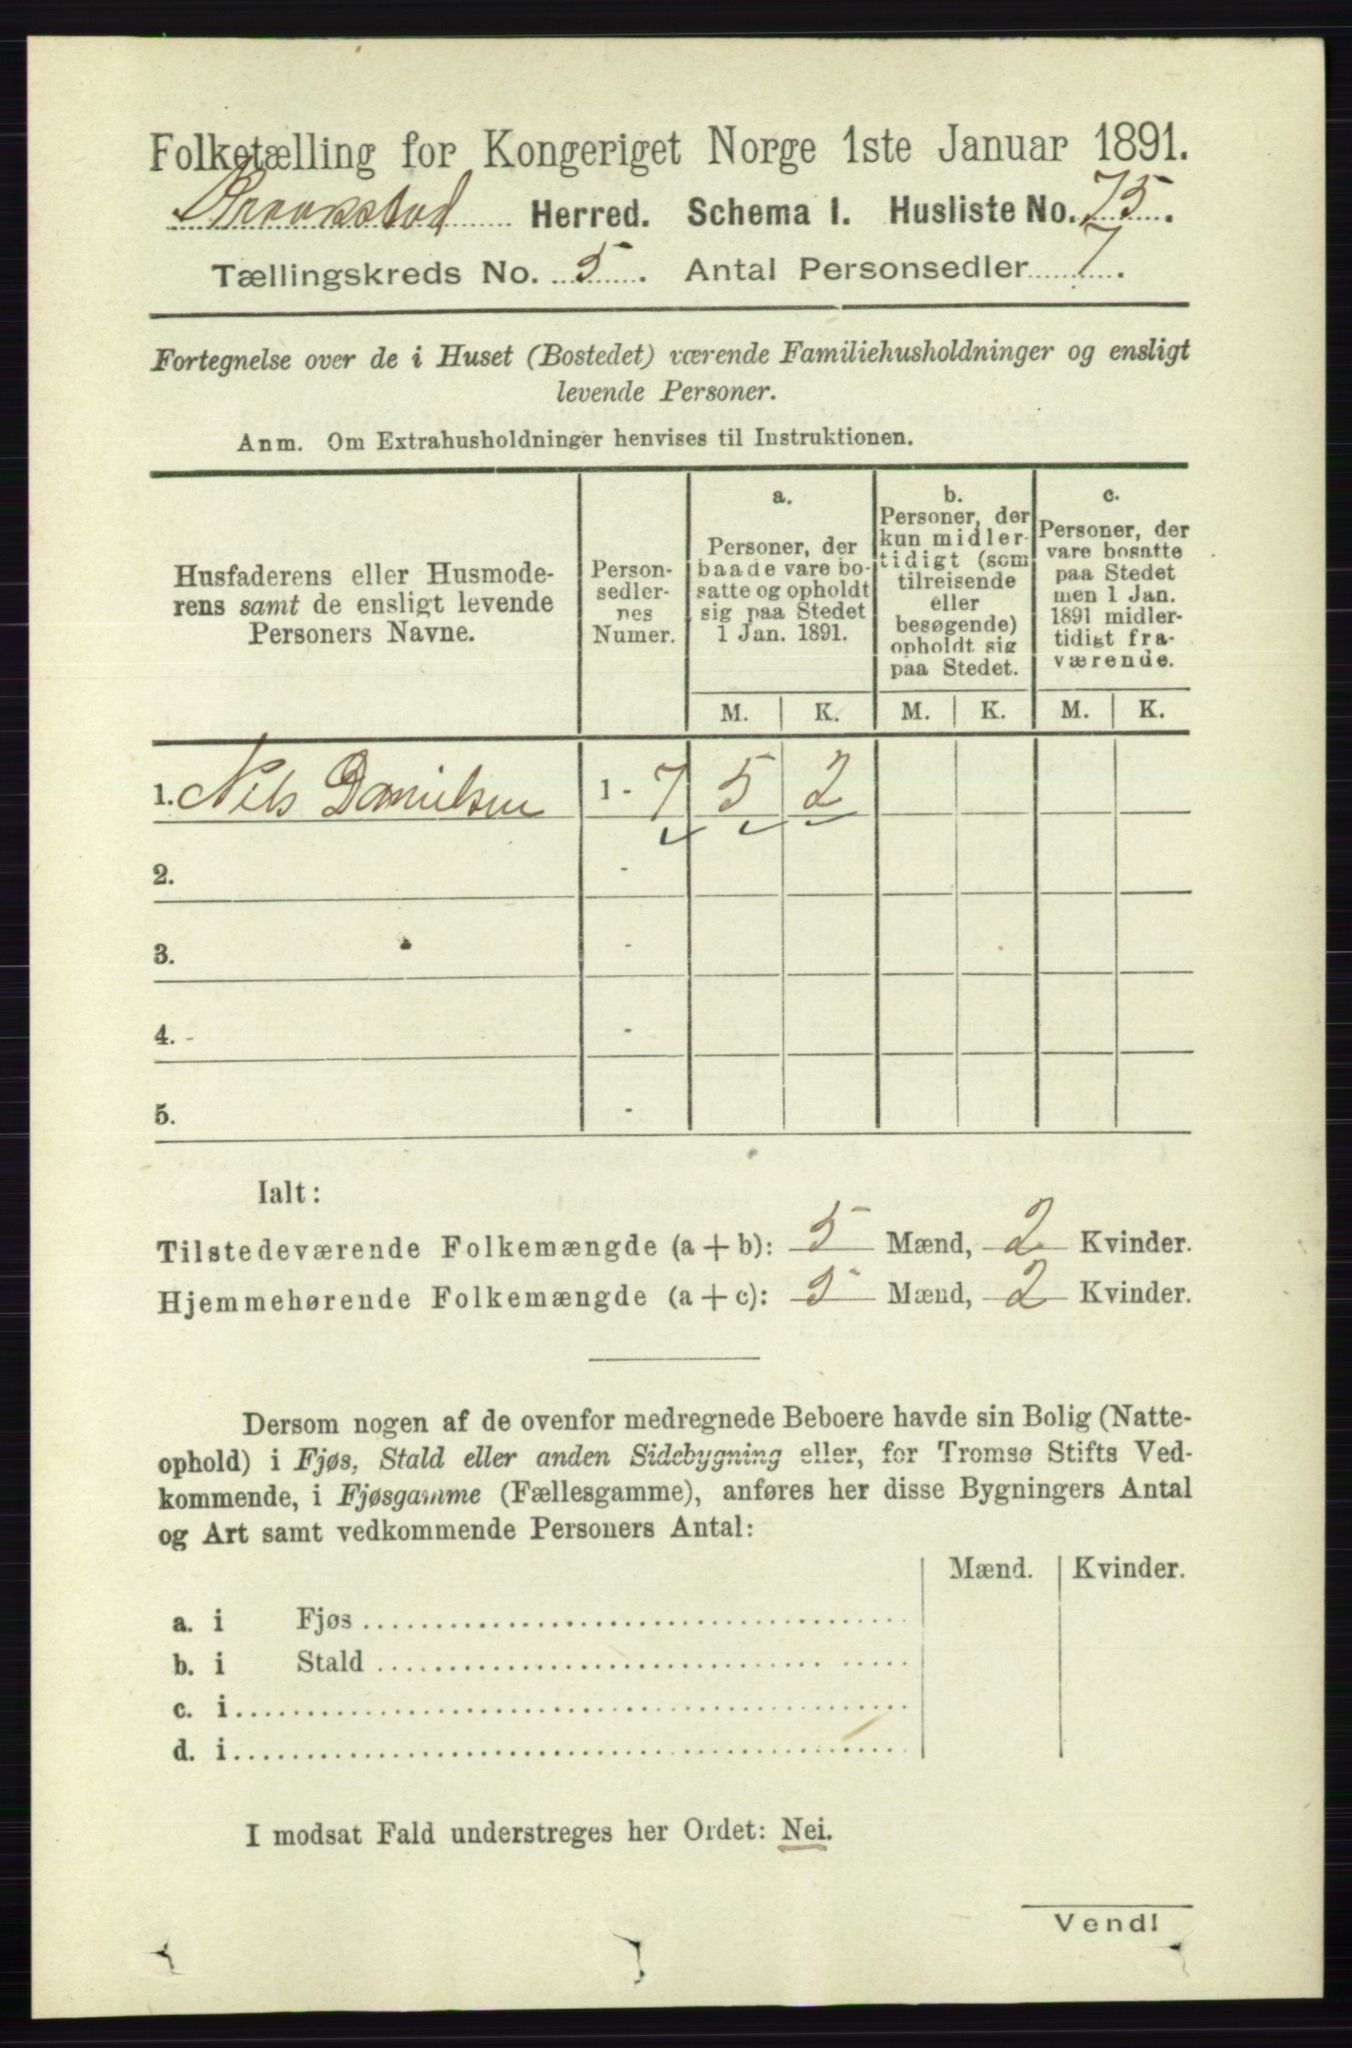 Folketælling for Kongeriget Norge 1ste Januar 1891.
Herred. Schema I. Husliste No. 75.
Tællingskreds No. 5. Antal Personsedler 7.
Fortegnelse over de i Huset (Bostedet) værende Familiehusholdninger og ensligt
levende Personer.
Anm. Om Extrahusholdninger henvises til Instruktionen.
Husfaderens eller Husmode-
rens samt de ensligt levende
Personers Navne.
Person-
sedler-
nes
Numer.
a.
Personer, der
baade vare bo-
satte og opholdt
sig paa Stedet
1 Jan. 1891.
b.
Personer, der
kun midler-
tidigt (som
tilreisende
eller
besøgende)
opholdt sig
paa Stedet.
c.
Personer, der
vare bosatte
paa Stedet
men 1 Jan.
1891 midler-
tidigt fra-
værende.
M. K. M. K. M. K.
1. Nils Danielsen 1 - 7 5 2
2. -
3. -
4. -
5. -
Ialt:
Tilstedeværende Folkemængde (a + b): 5 Mænd, 2 Kvinder.
Hjemmehørende Folkemængde (a + c): 5 Mænd, 2 Kvinder.
Dersom nogen af de ovenfor medregnede Beboere havde sin Bolig (Natte-
ophold) i Fjøs, Stald eller anden Sidebygning eller, for Tromsø Stifts Ved-
kommende, i Fjøsgamme (Fællesgamme), anføres her disse Bygningers Antal
og Art samt vedkommende Personers Antal:
Mænd. Kvinder.
a. i Fjøs
b. i Stald
c. i
d. i
I modsat Fald understreges her Ordet: Nei.
Vend!